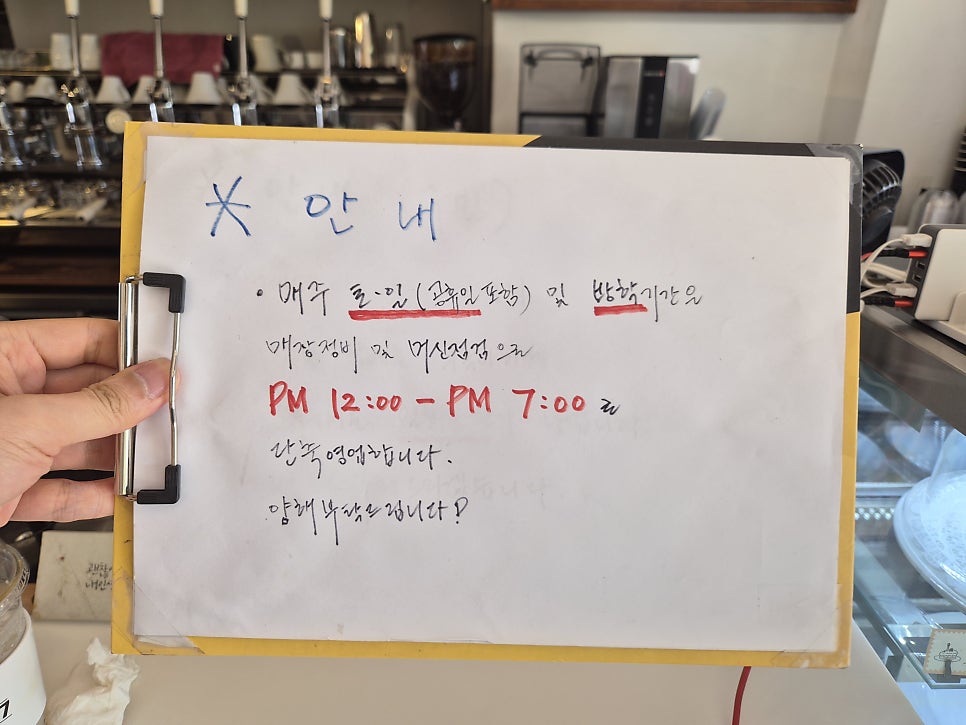 * 안 내
• 매주 토·일(공휴일포함) 및 방학기간은
매장정비 및 머신점검으로
PM 12:00 - PM 7:00 로
단축영업합니다.
양해부탁드립니다!